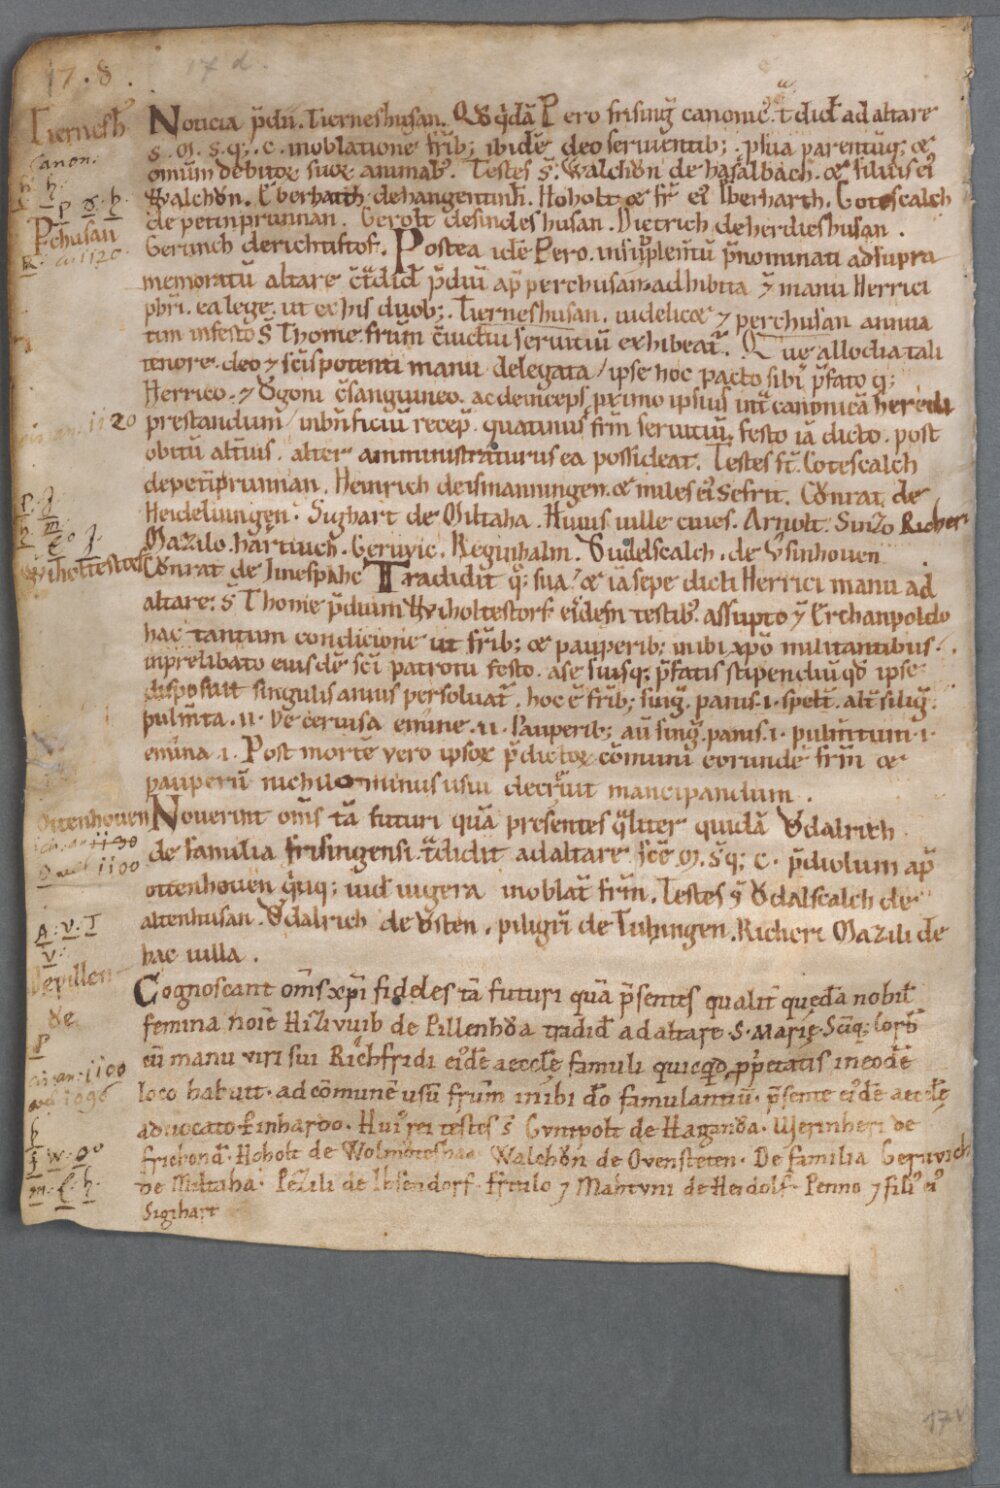 17 · 8 .
17 d.
Tierneshus
Noticia p̄dii. Tierneshusan. Qd q̇dā Pero frisinḡ canonic᷒ t̄didit ad altare
Canon.
s. m̄. s. q;. c. inoblatione fr̄ib; ibidē deo seruientib;. p sua parentūq; &
omnium debitoꝝ suoꝝ animab᷒. Testes s̄. Walchŏn de hasalbach. & filius ei᷒
Walchŏn. Eberharth de hangentinh̄. Hoholt & fr̄ ei᷒ Eberharth. Gotescalch
de petinprunnan. Gerolt desindeshusan. Dietrich de herdieshusan.
Pchusan
Gerunch derichtistof. Postea idē Pero. insuplemtū p̄nominati ad supra
c. 1120
memoratū altare c̄t̄didit p̄diū ap̄ perchusan ad hibita ⁊ manu Herrici
pbr̄i. ea lege. ut ex his duob;. Tierneshusan. uidelicet ⁊ perchusan annua
tim in festo S Thome frūm c̄uictui seruitiū exhibeat᷒. Que allodia tali
tenore deo ⁊ sc̄is potenti manu delegata / ipse hoc pacto sibi p̄fato q;
Herrico. ⁊ Ŏgoni c̄sanguineo. ac deinceps p̱ximo ipsius int̄ canonicā heredi
1120
prestandum / in bn̄ficiū recep̄. quatinus fr̄m seruitiū festo iā dicto. post
obitū alt̄ius. alter amministraturus ea possideat. Testes s̄t. Gotescalch
de petīprunnan. Heinrich de ismanningen. & miles ei᷒ Sefrit. Cŏnrat de
Heidelingen. Sigihart de Miltaha. Huius uille ciues. Arnolt. Sinzo Richeri
Mazilo. hartiuch. Geruvic. Reginhalm. Ŏudelscalch. de Vsinhouen
Wiholtestorf
Cŏnrat de Jnespahc Tradidit q; sua. & iā sepe dicti Herrici manu ad
altare. s̄ Thome p̄dium Wiholtestorf eisdem testib᷒. assupto ⁊ Erchanpoldo
hac tantum condicione ut fr̄ib; & pauperib; inibi xp̄o militantibus.
in prelibato eiusdē sc̄i patroni festo. a se suisq; p̄fatis stipendiū qd ipse
disposuit singulis annis persoluat᷒. hoc ē fr̄ib; sinḡ. panis. i. spelt̄. alt̄ siliḡ.
pulm̄ta. ii. De ceruisa emine. ii. Pauperib; aū sinḡ. panis. i. pulm̄tum. i.
emina. i. Post mortē vero ipsoꝝ p̄dictoꝝ cōmuni eorundē fr̄m &
pauperū nichilominus usui decr̄uit mancipandum.
Ottenhouen
Nouerint om̄s tā futuri quā presentes q̄liter quidā Ŏdalrich
1130
de familia frisingensi t̄didit ad altare sc̄e M. s̄. q; c. p̄diolum ap̄
1100
ottenhouen q̄nq; uid̄ iugera in oblat̄ fr̄m. Testes s̄ Ŏdalscalch de
altenhusan. Ŏdalrich de Ŏsten. piligrī de Tuhingen. Richeri Mazili de
A. v. T
v.
hac uilla.
De pillen
Cognoscant om̄s xp̄i fideles tā futuri quā p̄sentes qualit̄ quedā nobil̄
femina noīe Hiziwib de Pillenhŏa tradid̄ ad altare S. Marię. Scīq; Corb̄
P
cū manu viri sui Richfridi ei᷒dē aecclę̄ famuli quicqd p̱prietatis in eodē
1100
loco habuit. ad cōmunē usū fr̄um inibi d̄o famulantiū. p̄sente ei᷒dē aecclę̄
1096
aduocato Einhardo. Hui᷒ rei testes s̄ Gvntpolt de Haganŏa. Werinheri de
W. o
frichend̄. Hoholt de Wolmŏteshaa Walchŏn de Ovensteten. De familia Geruvich
m. C. h.
de Miltaha. Pezili de Ibsendorf. Frutilo ⁊ Mantvni de Heidolf. Penno ⁊ fili᷒ ei᷒
Sigihart
17v